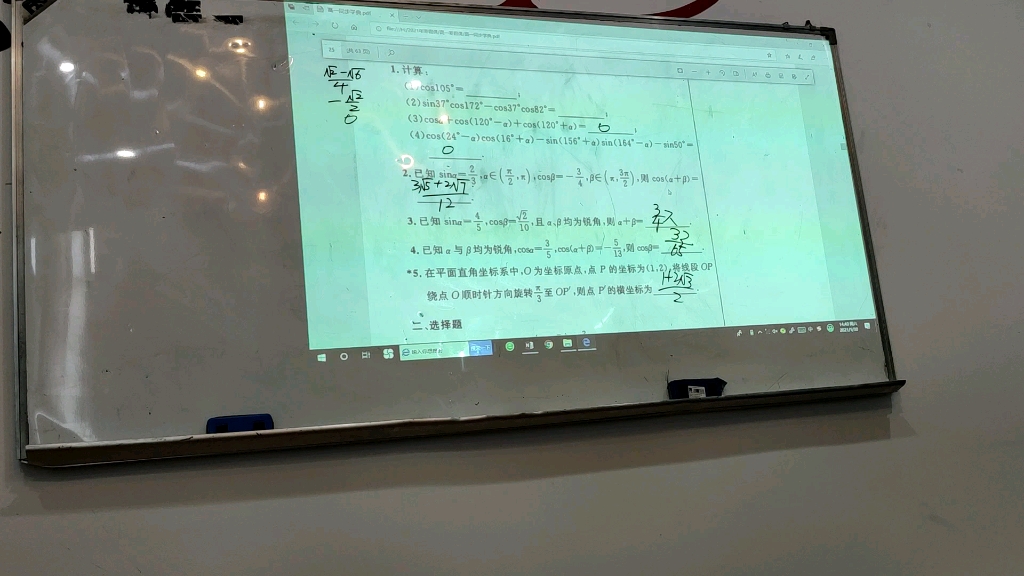 高一同步学典.pdf
共 60 页
1. 计算:
(1)cos105°=________;
(2)sin37°cos172°-cos37°cos82°=________;
(3)cosα+cos(120°-α)+cos(120°+α)= 0 ;
(4)cos(24°-α)cos(16°+α)-sin(156°+α)sin(164°-α)-sin50°=
0 .
2. 已知 sinα=2/3,α∈(π/2,π),cosβ=-3/4,β∈(π,3π/2),则 cos(α+β)=
(3√5+2√7)/12 .
3. 已知 sinα=4/5,cosβ=√2/10,且 α、β 均为锐角,则 α+β= 3/4π
4. 已知 α 与 β 均为锐角,cosα=3/5,cos(α+β)=-5/13,则 cosβ= 33/65 .
*5. 在平面直角坐标系中,O 为坐标原点,点 P 的坐标为(1,2),将线段 OP
绕点 O 顺时针方向旋转π/3至 OP′,则点 P′的横坐标为 (1+2√3)/2
二、选择题
(√2-√6)/4
-√2/2
0